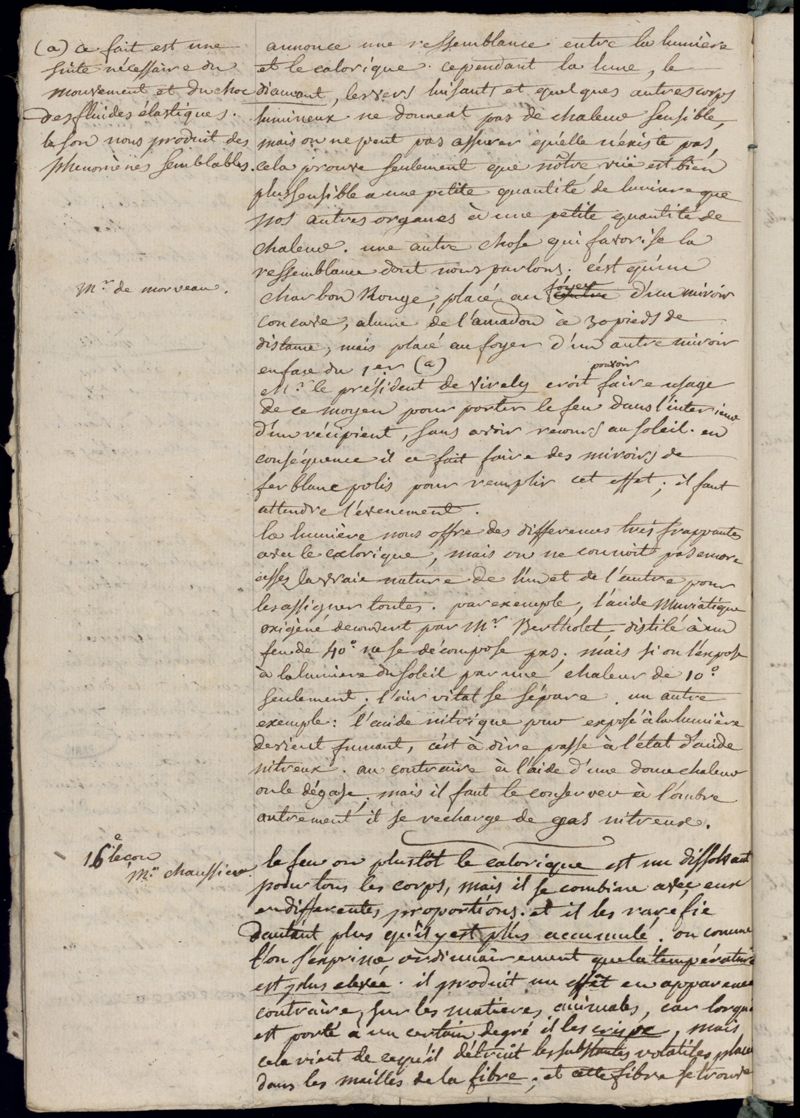 (a) ce fait est une
suite nécessaire du
mouvement et du choc
des fluides élastiques.
le son nous produit des
phenomènes semblables.
annonce une ressemblance entre la lumière
et le calorique. cependant la lune, le
diamant, les vers luisants et quelques autres corps
lumineux ne donnent pas de chaleur sensible,
mais on ne peut pas assurer qu'elle n'éxiste pas,
cela prouve seulement que nôtre vüe est bien
plus sensible a une petite quantité de lumiere que
nos autres organes à une petite quantité de
chaleur. une autre chose qui favorise la
ressemblance dont nous parlons. c'est qu'un
Mr. de morveau.
charbon Rouge, placé au foyer d'un miroir
concave, alume de l'amadou à 30 pieds de
distance, mais placé au foyer d'un autre miroir
en face du 1er (a)
Mr. le président de virely croit pouvoir faire usage
de ce moyen pour porter le feu dans l'interieur
d'un récipient, sans avoir recours au soleil. en
conséquence il a fait faire des miroirs de
fer blanc polis pour remplir cet effet; il faut
attendre l'évenement.
la lumière nous offre des differences très frappantes
avec le calorique, mais on ne connoit pas encore
assez la vraie nature de l'un et de l'autre pour
les assigner toutes. par exemple, l'acide Muriatique
oxigèné decouvert par Mr. Bertholet distilé à un
feu de 40° ne se décompose pas. mais si on l'expose
à la lumiere du soleil par une chaleur de 10°
seulement. l'air vital se sépare. un autre
exemple: l'acide nitrique pur exposé à la lumière
devient fumant, c'est à dire passe à l'état d'acide
nitreux. au contraire à l'aide d'une douce chaleur
on le dégase, mais il faut le conserver à l'ombre
autrement il se recharge de gas nitreux.
16e leçon
Mr. chaussier
le feu ou plustôt le calorique est un dissolvant
pour tous les corps, mais il se combine avec eux
en differentes proportions. et il les rarefie
d'autant plus qu'il y est plus accumulé. ou comme
l'on s'exprime ordinairement que la température
est plus elevée. il produit un effêt en apparence
contraire, sur les matieres animales, car lorqu'
est porté à un certain degré il les crispe, mais
cela vient de ce qu'il détruit les substances volatiles placé
dans les mailles de la fibre; et cette fibre se trouve